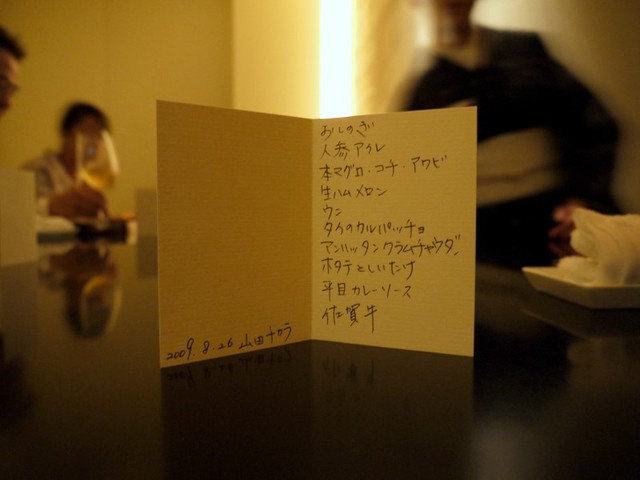 2009.8.26 山田チカラ
おしのぎ
人参アイレ
本マグロ・コチ・アワビ
生ハムメロン
ウニ
タイのカルパッチョ
マンハッタンクラムチャウダー
ホタテとしいたけ
平目カレーソース
佐賀牛